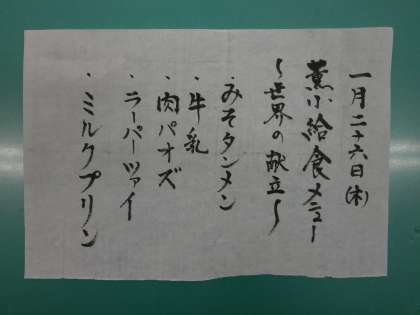 一月二十六日(木)
薫小給食メニュー
～世界の献立～
・みそタンメン
・牛乳
・肉パオズ
・ラーパーツァイ
・ミルクプリン